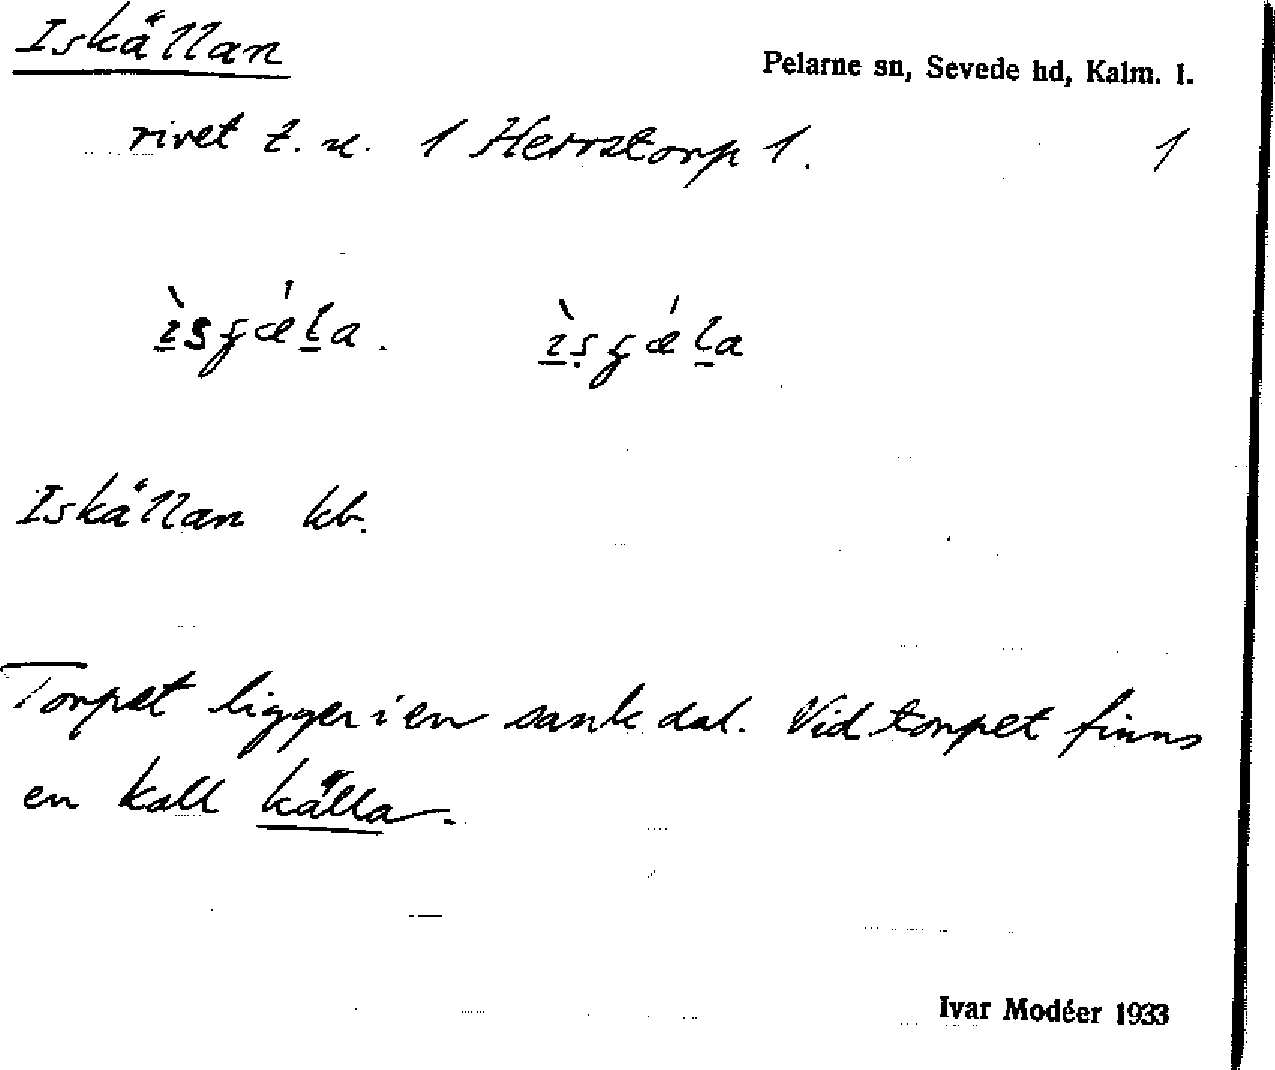 Iskällan
Pelarne sn, Sevede hd, Kalm. l.
rivet t. u. 1 Herrstorp 1. 1
ìsɟǽla. ìsɟǽla
Iskällan kb.
Torpet ligger i en sank dal. Vid torpet finns
en kall källa.
Ivar Modéer 1933